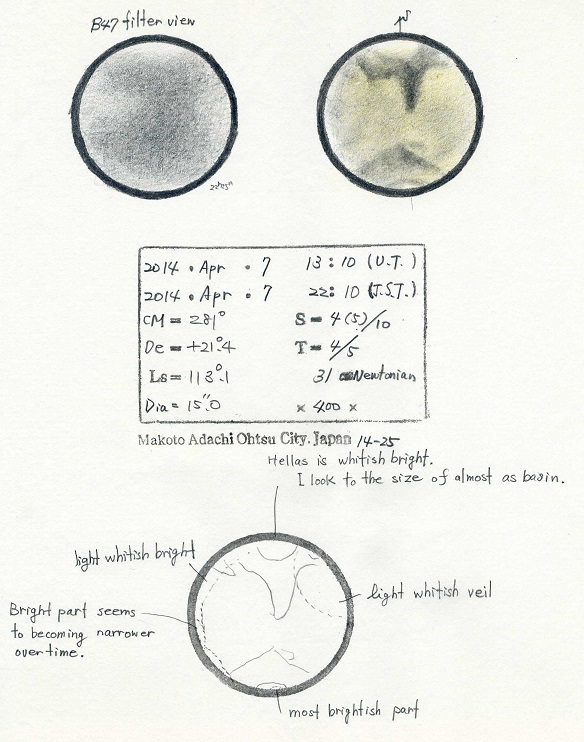 B47 filter view
22h05m
2014 . Apr . 7 13:10 (U.T.)
2014 . Apr . 7 22:10 (J.S.T.)
CM = 281° S = 4(5)/10
De = +21°.4 T = 4/5
Ls = 113°.1 31 cm Newtonian
Dia = 15".0 × 400 ×
Makoto Adachi Ohtsu City. Japan 14-25
Hellas is whitish bright.
I look to the size of almost as basin.
light whitish bright
light whitish veil
Bright part seems
to becoming narrower
over time.
most brightish part